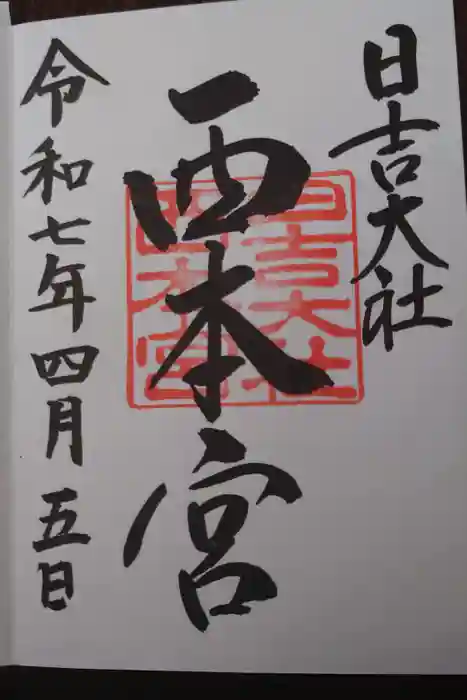 日吉大社
西本宮
日吉大社
西本宮
令和七年四月五日